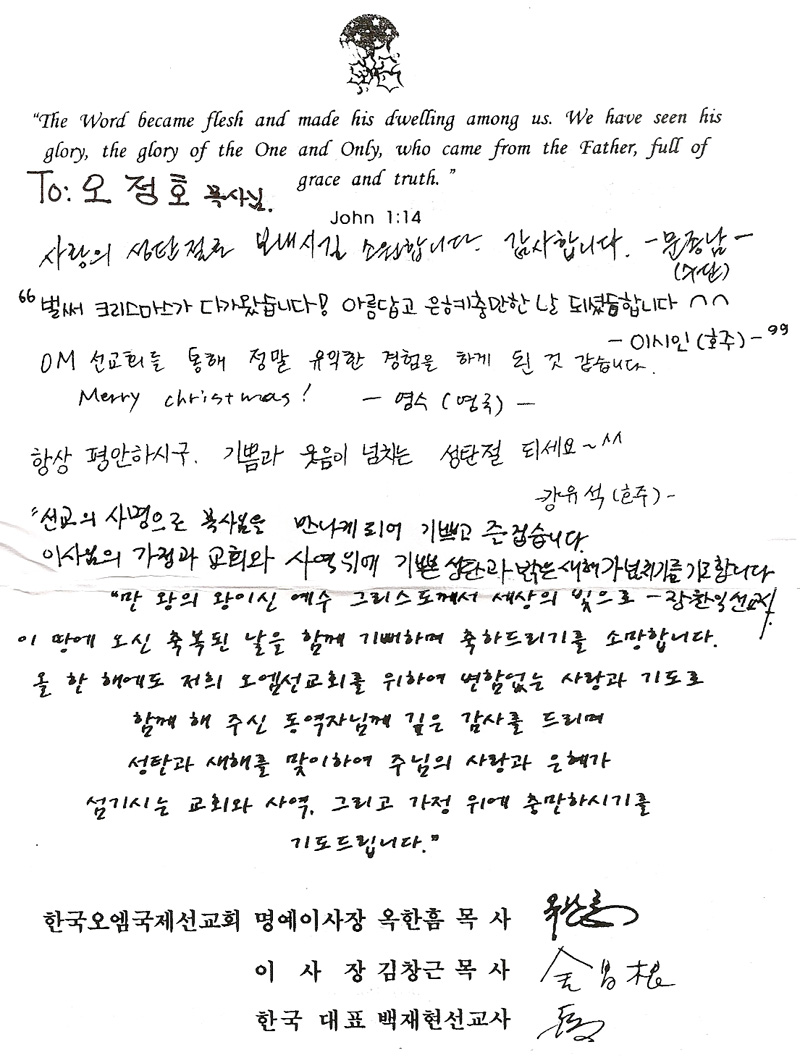 “The Word became flesh and made his dwelling among us. We have seen his
glory, the glory of the One and Only, who came from the Father, full of
grace and truth.”
To: 오정호 목사님.
John 1:14
사랑의 성탄절로 보내시길 소원합니다. 감사합니다. -문정남-
(수단)
“벌써 크리스마스가 다가왔습니다! 아름답고 은혜충만한 날 되셨듬합니다 ^^
- 이시인 (호주) - ”
OM 선교회를 통해 정말 유익한 경험을 하게 된 것 같습니다.
Merry christmas! - 영수 (영국) -
항상 평안하시구. 기쁨과 웃음이 넘치는 성탄절 되세요~^^
강유석 (호주) -
“선교의 사명으로 목사님을 만나게 되어 기쁘고 즐겁습니다.
이사님의 가정과 교회와 사역위에 기쁜 성탄과 밝은 새해가 넘치기를 기도합니다
“만 왕의 왕이신 예수 그리스도께서 세상의 빛으로 - 장환익선교사
이 땅에 오신 축복된 날을 함께 기뻐하며 축하드리기를 소망합니다.
올 한 해에도 저희 오엠선교회를 위하여 변함없는 사랑과 기도로
함께 해 주신 동역자님께 깊은 감사를 드리며
성탄과 새해를 맞이하여 주님의 사랑과 은혜가
섬기시는 교회와 사역, 그리고 가정 위에 충만하시기를
기도드립니다.”
한국오엠국제선교회 명예이사장 옥한흠 목사
이 사 장 김창근 목사 金昌根
한국 대표 백재현선교사